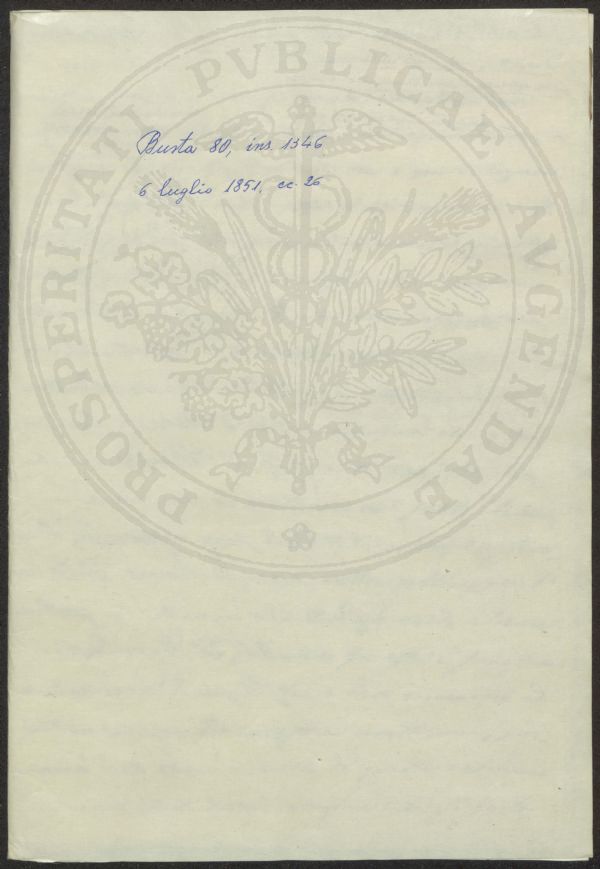 Busta 80, ins. 1346
6 luglio 1851, cc. 26
PROSPERITATI PVBLICAE AVGENDAE